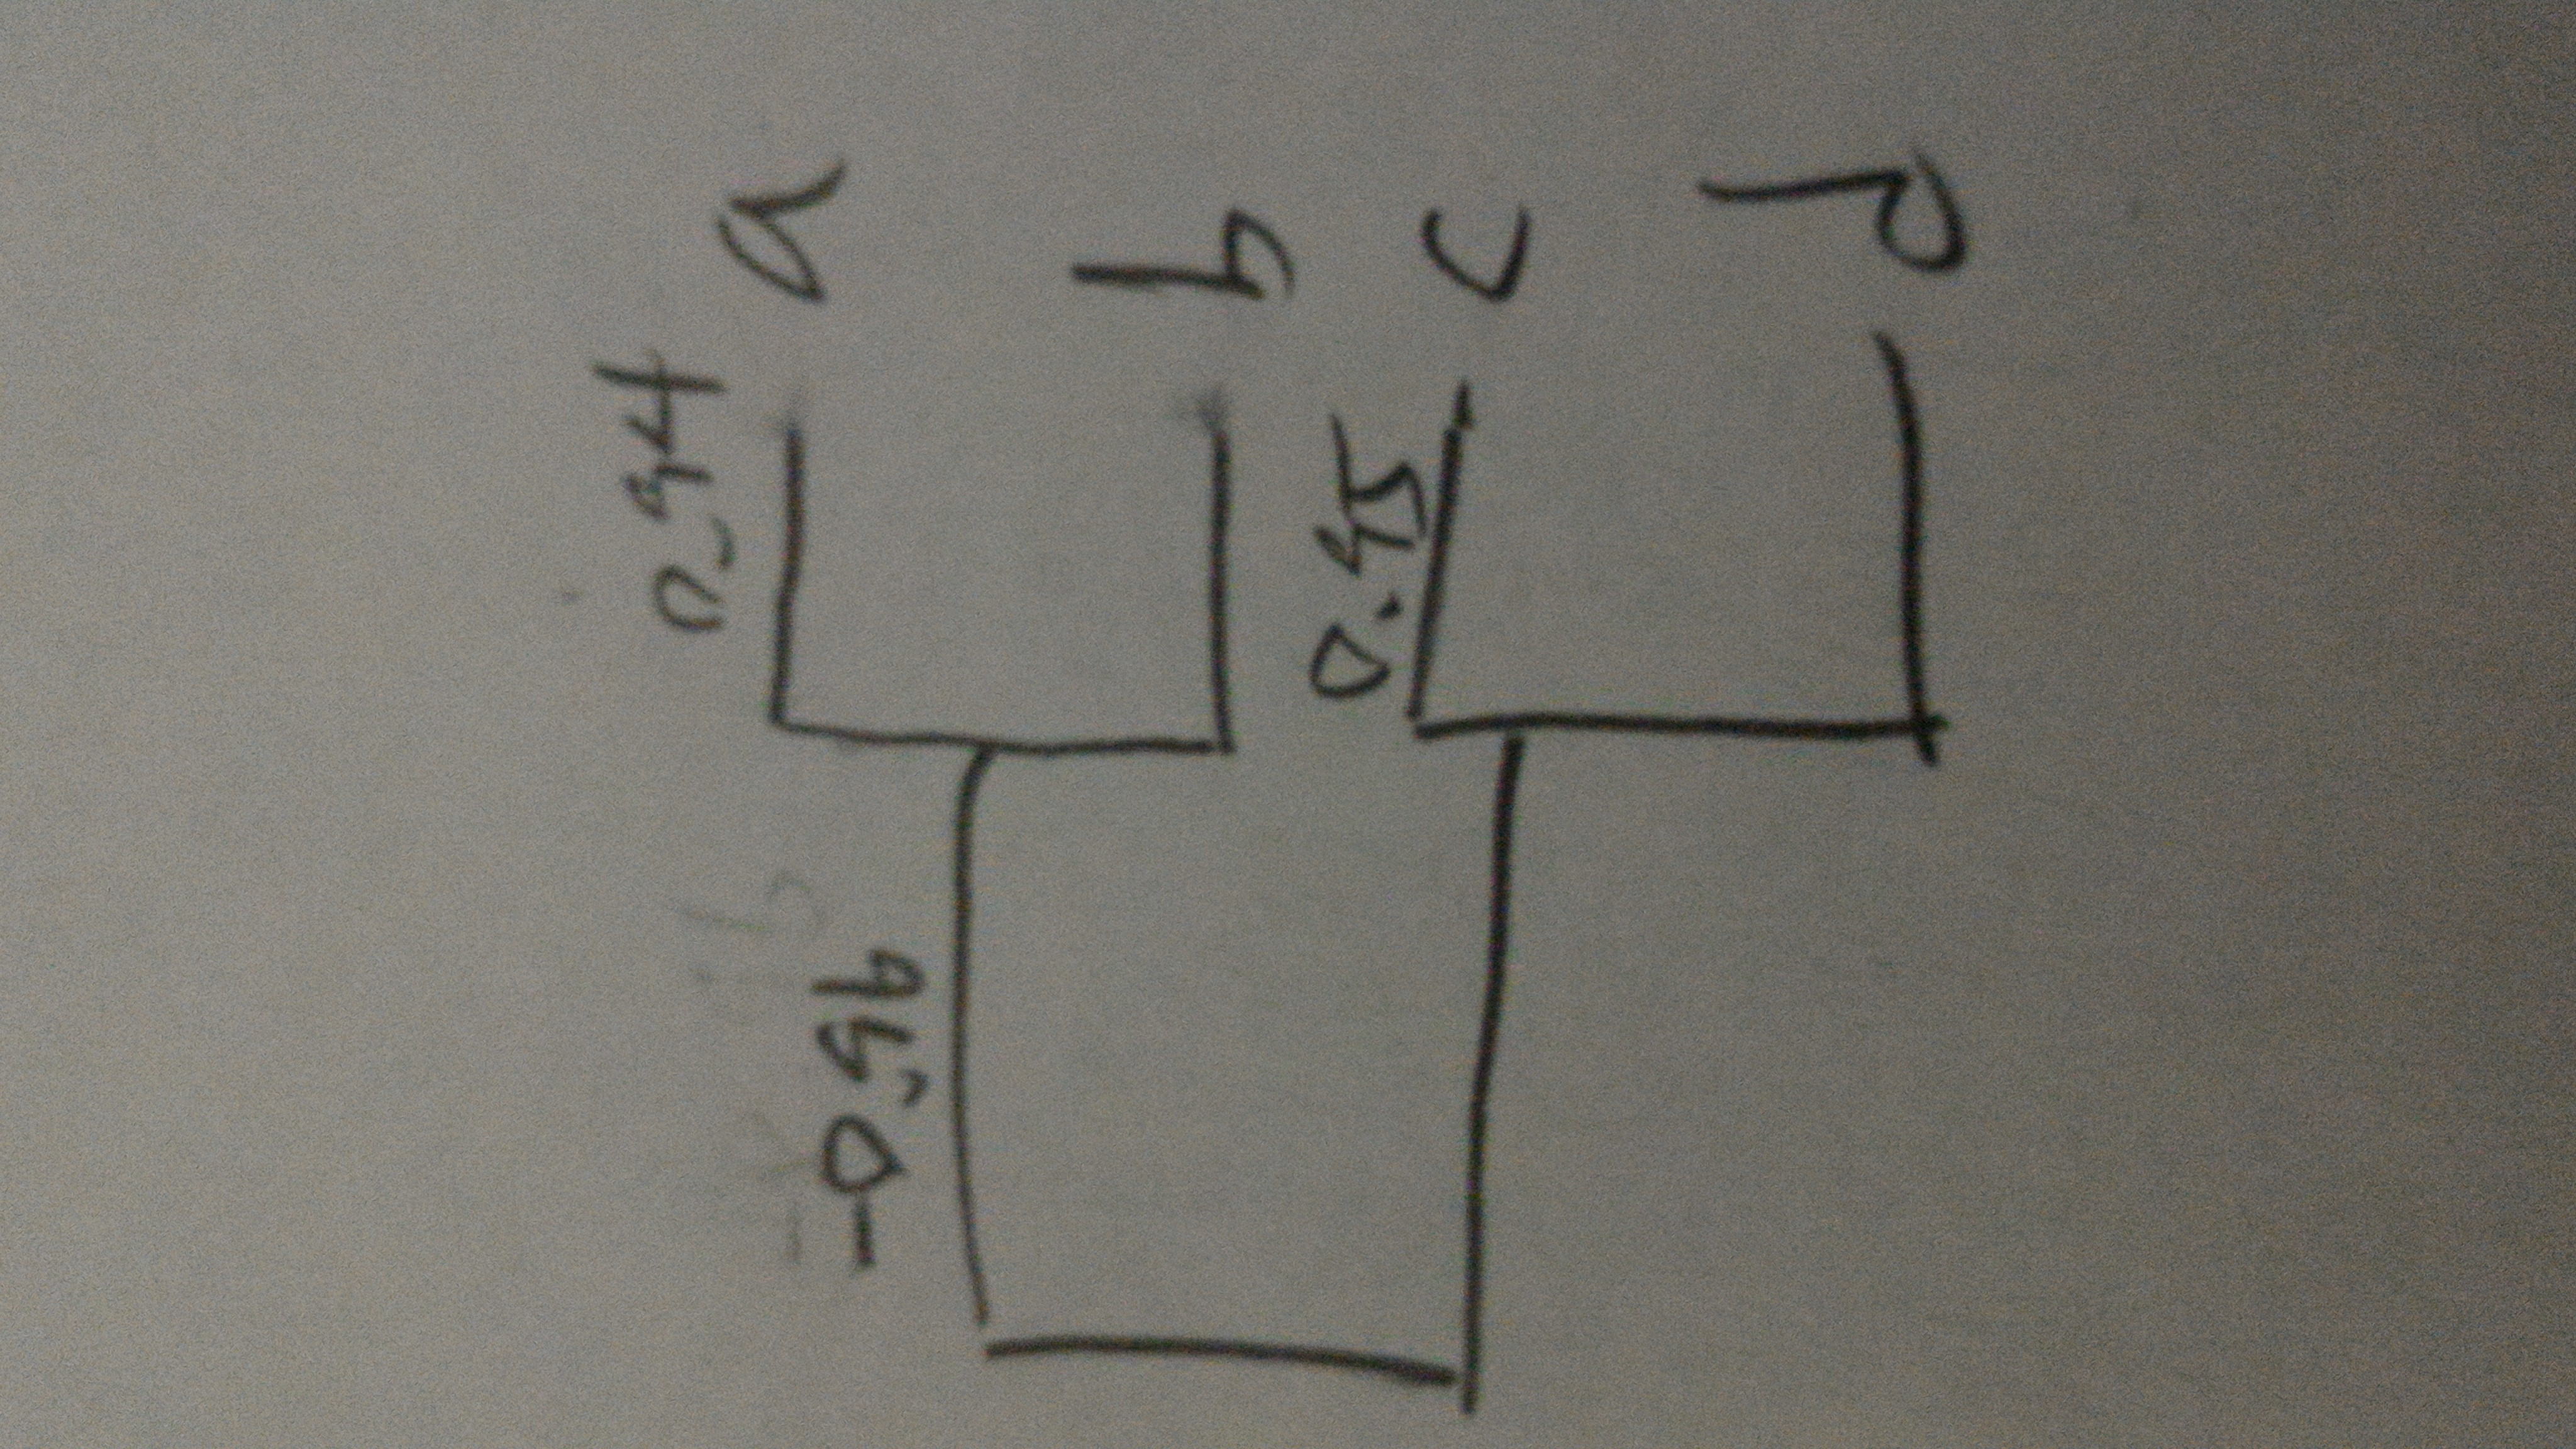 0.94
a
-0.96
b
0.95
c
d